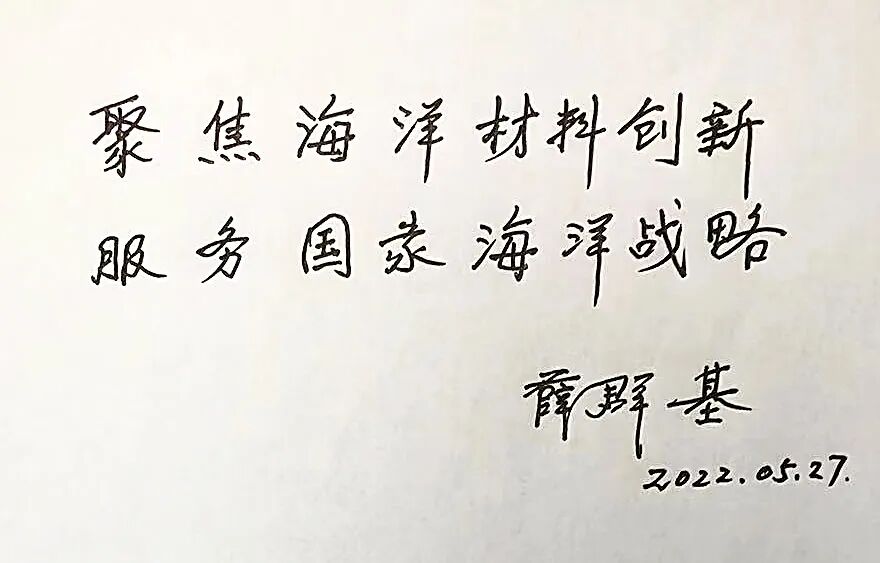 聚焦海洋材料创新
服务国家海洋战略
薛群基
2022.05.27.